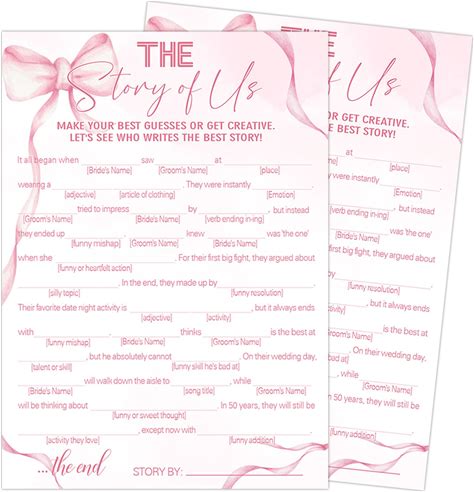 THE
Story of Us
MAKE YOUR BEST GUESSES OR GET CREATIVE.
LET'S SEE WHO WRITES THE BEST STORY!
It all began when ________ saw ________ at ________,
[Bride's Name] [Groom's Name] [place]
wearing a ________ ________. They were instantly ________.
[adjective] [article of clothing] [Emotion]
________ tried to impress ________ by ________, but instead
[Groom's Name] [Bride's Name] [verb ending in-ing]
they ended up ________. ________ knew ________ was 'the one'
[funny mishap] [Groom's Name] [Bride's Name]
when she ________. For their first big fight, they argued about
[funny or heartfelt action]
________. In the end, they made up by ________.
[silly topic] [funny resolution]
Their favorite date night activity is ________, but it always ends
[activity]
with ________. ________ thinks ________ is the best at
[funny mishap] [Bride's Name] [Groom's Name]
________, but he absolutely cannot ________. On their wedding day,
[talent or skill] [funny skill he's bad at]
________ will walk down the aisle to ________ while ________
[Bride's Name] [song title] [Groom's Name]
will be thinking about ________. In 50 years, they will still be
[funny or sweet thought]
________, except now with ________.
[activity they love] [funny addition]
... the end
STORY BY:
OR GET CREATIVE.
THE BEST STORY!
at
[place]
were instantly
[Emotion]
, but instead
[verb ending in-ing]
was 'the one'
[Bride's Name]
they argued about
[funny resolution]
but it always ends
is the best at
[Groom's Name]
. On their wedding day,
bad at]
while
[Groom's Name]
In 50 years, they will still be
[funny addition]